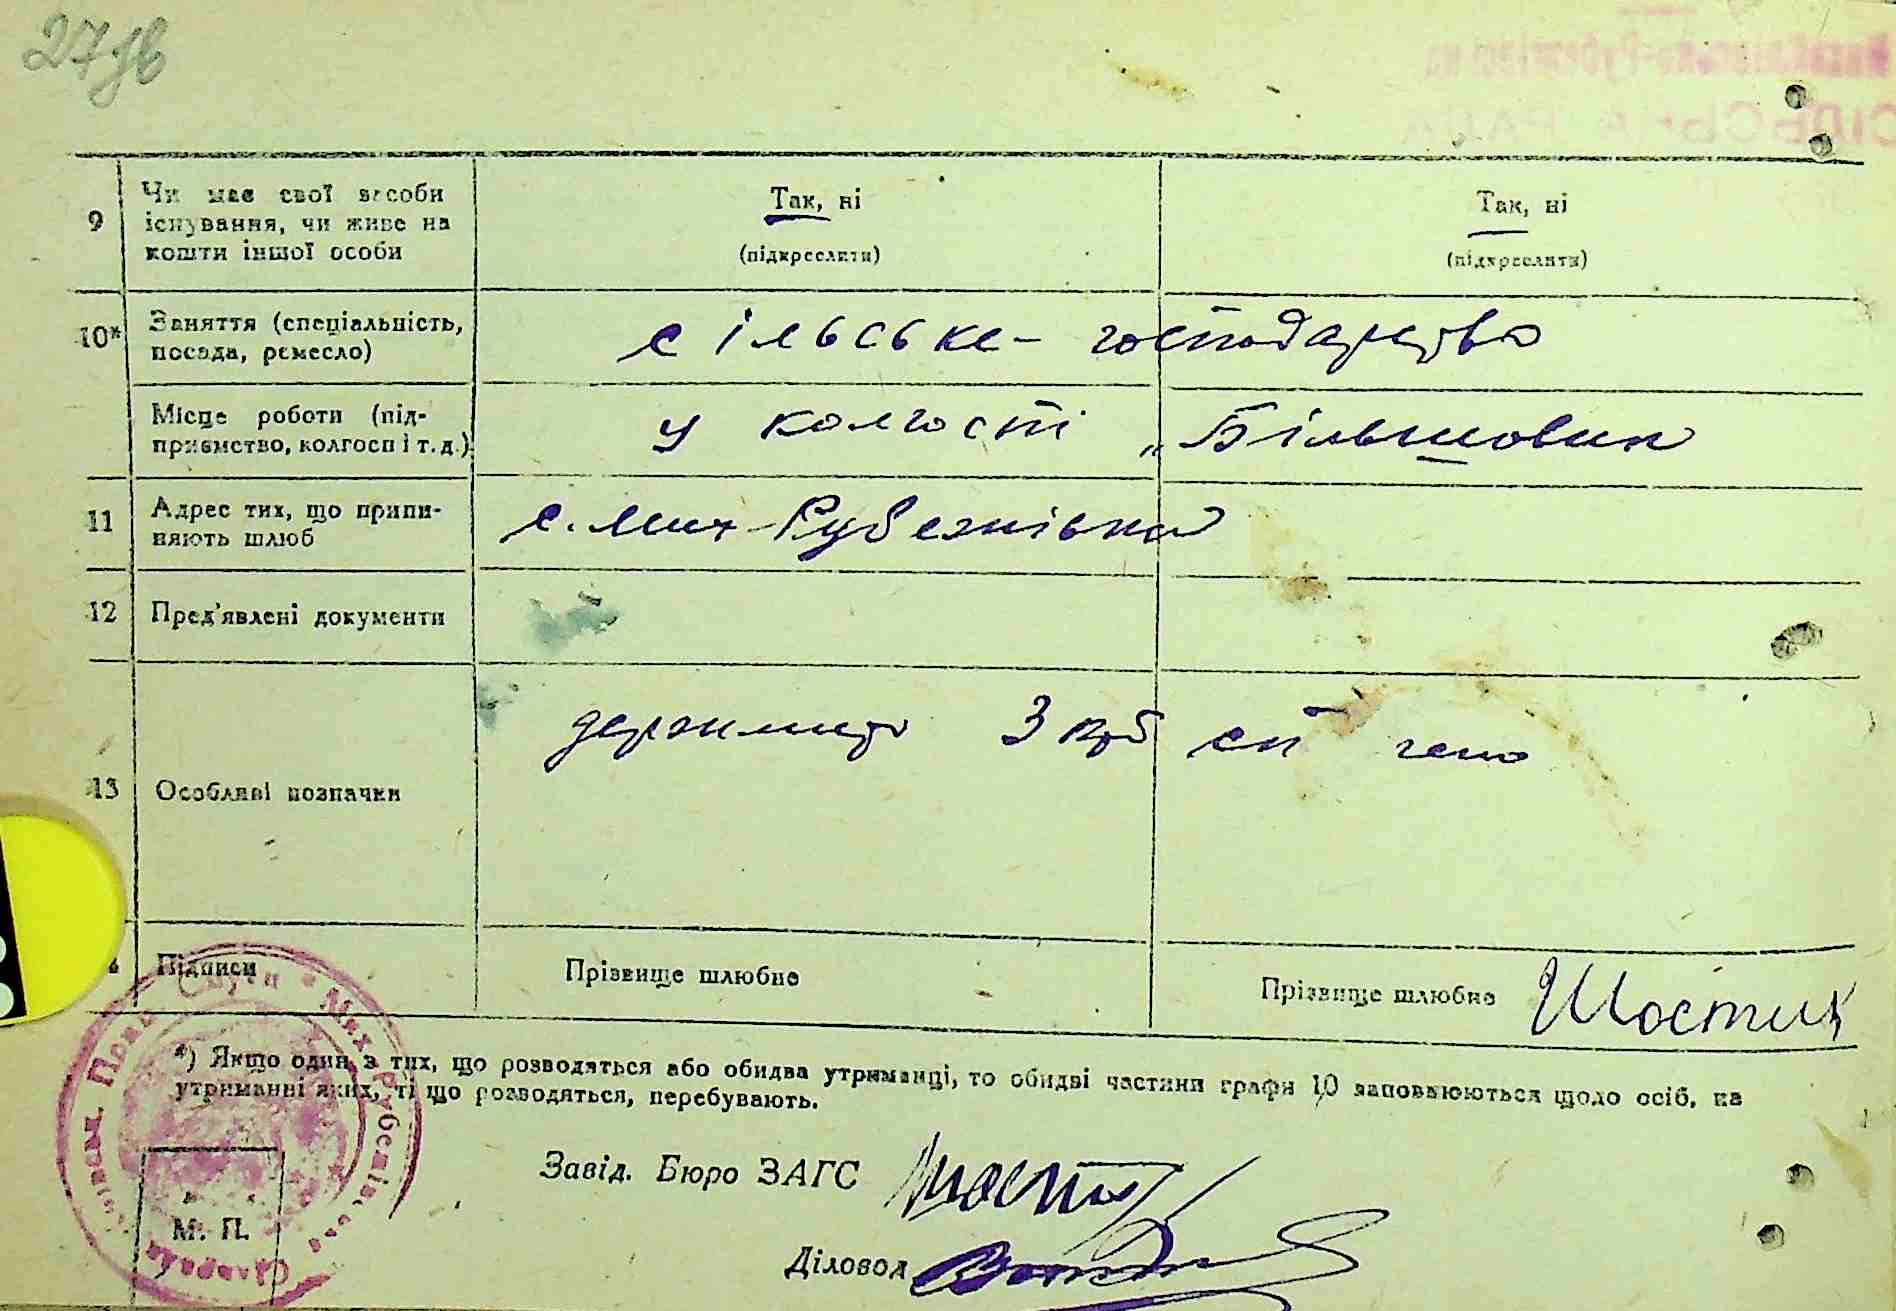 27зв
9
Чи має свої засоби
існування, чи живе на
кошти іншої особи
Так, ні
(підкреслити)
Так, ні
(підкреслити)
10*
Заняття (спеціальність,
посада, ремесло)
сільське-господарство
Місце роботи (під-
приємство, колгосп і т. д.)
у колгоспі „Більшовик
11
Адрес тих, що припи-
няють шлюб
с. Мих-Рубежнівка
12
Пред'явлені документи
13
Особливі позначки
держмито 3 крб
Підписи
Прізвище шлюбне
Прізвище шлюбне Шостик
*) Якщо один з тих, що розводяться або обидва утриманці, то обидві частини графи 10 заповнюються щодо осіб, на
утриманні яких, ті що розводяться, перебувають.
Завід. Бюро ЗАГС
Діловод
М. П.
СІЛЬСЬКА РАДА